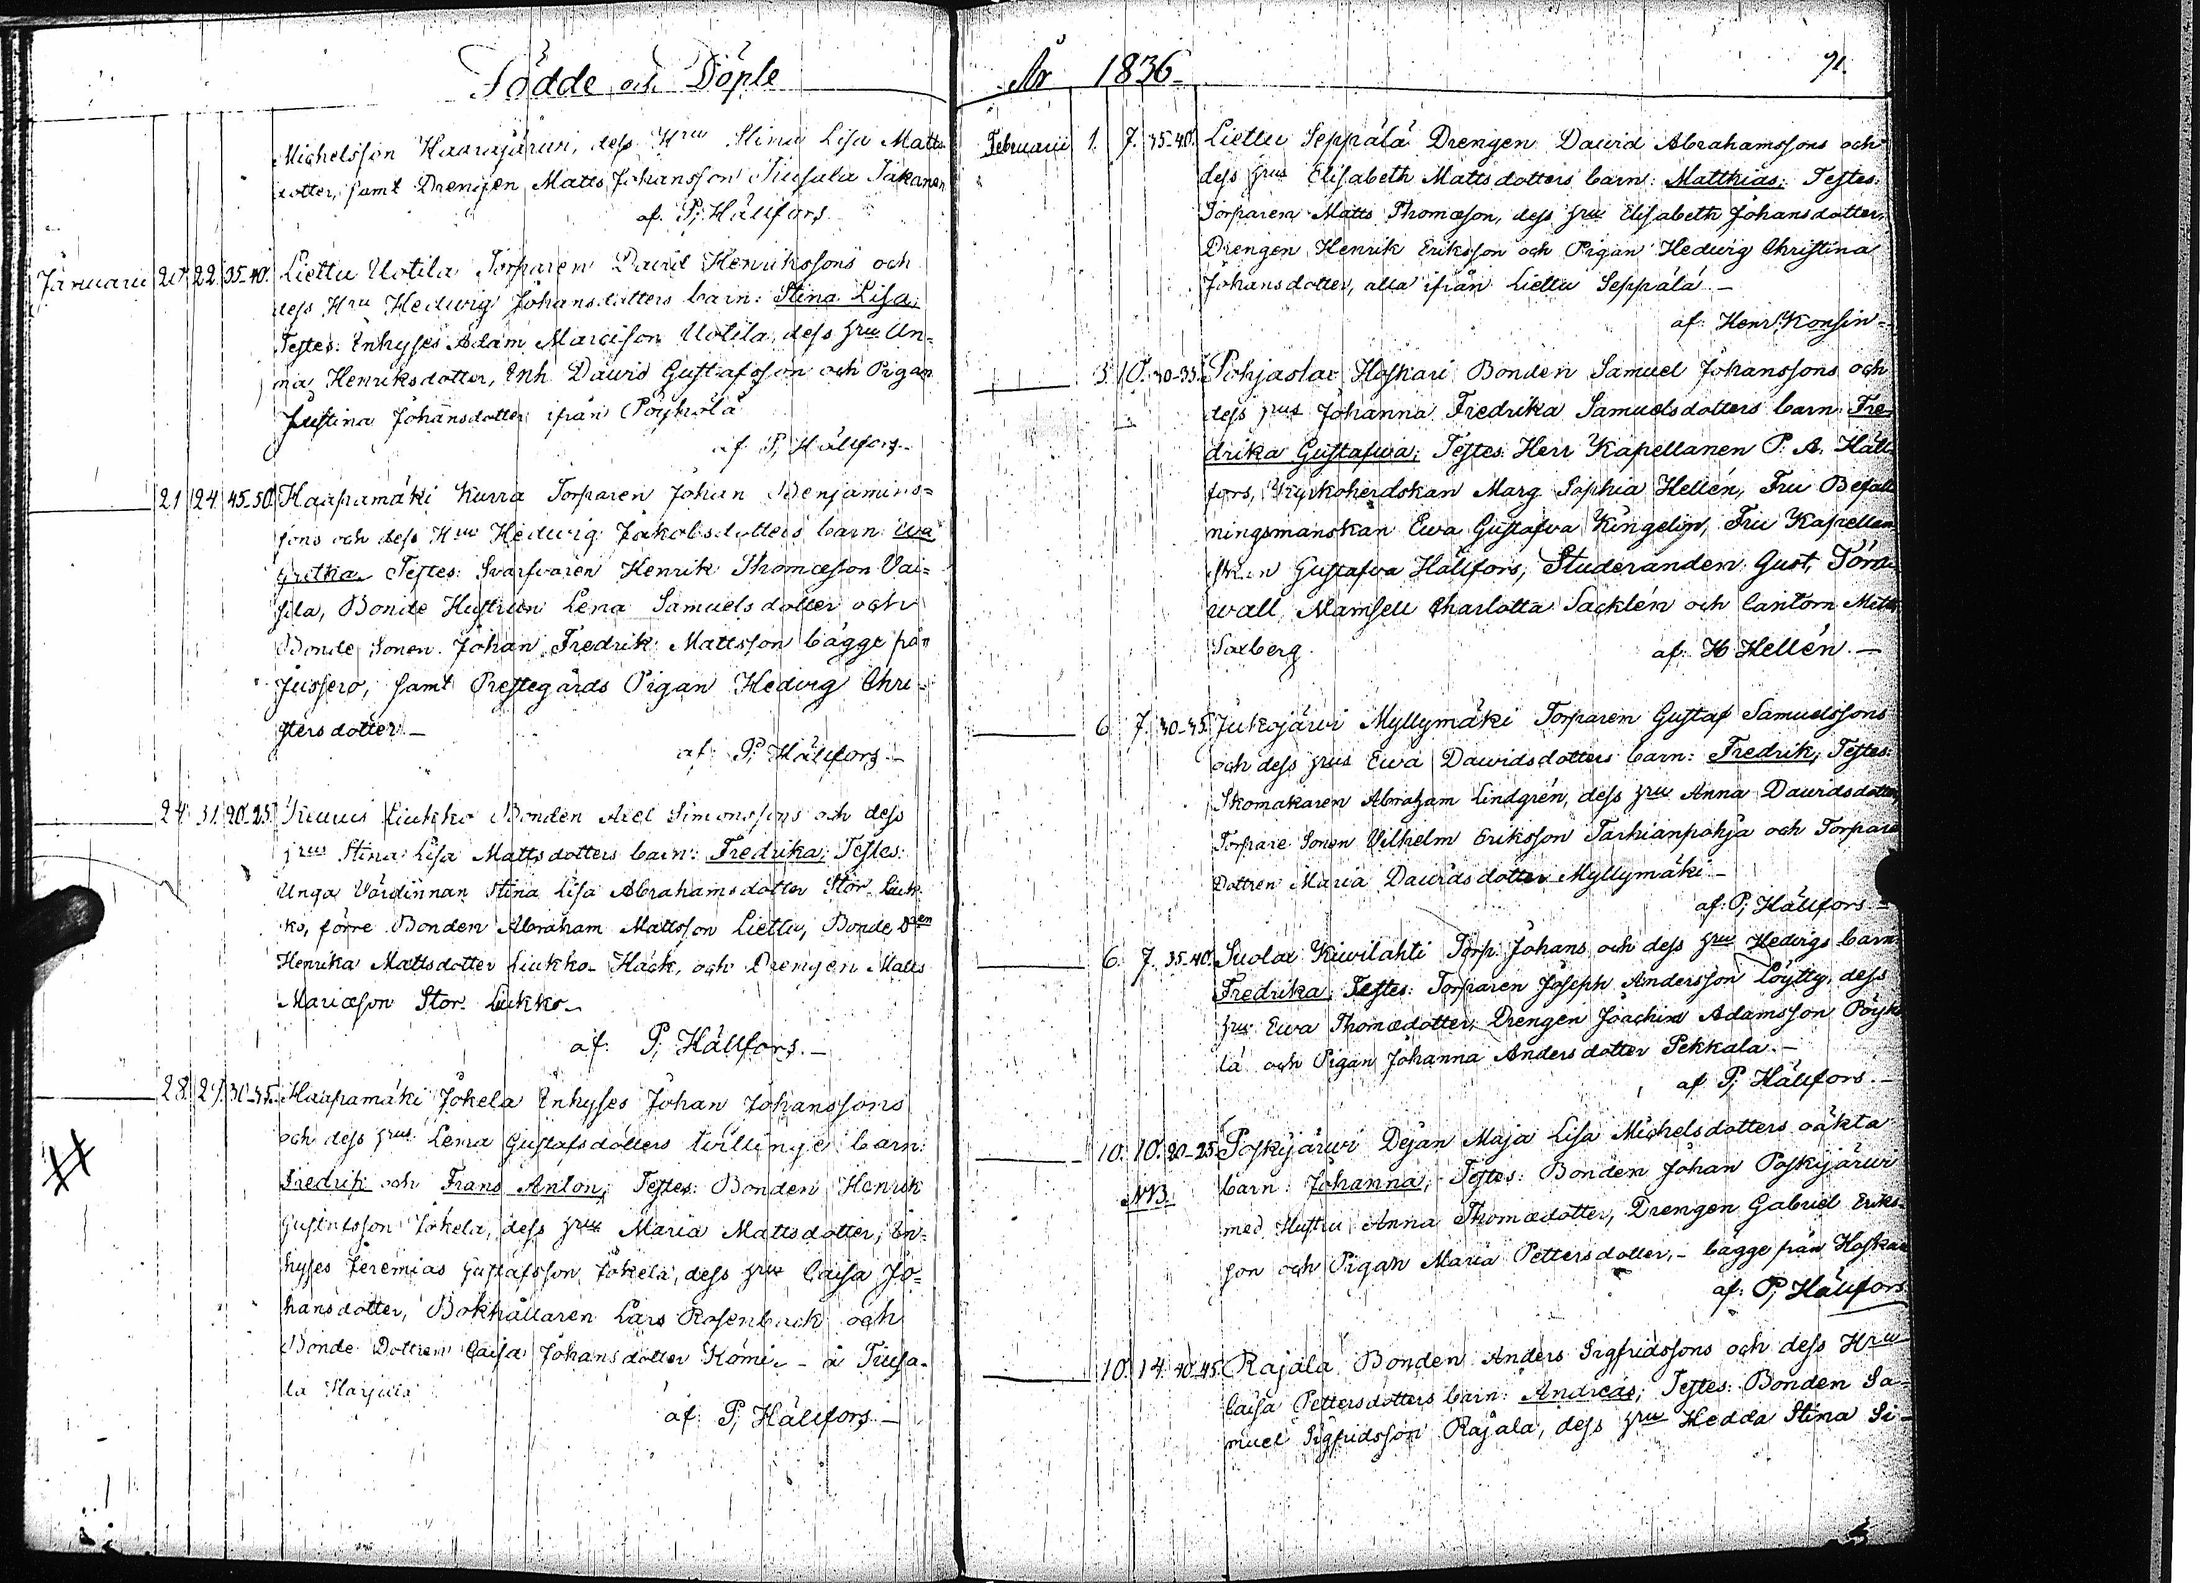 Födde och Döpte
Michelsson Haarajärwi, dess Hru Stina Lisa Matts
dotter, samt Drengen Matts Johansson Tiusala Takanen
af. P; Hällfors
Januarii 20 22 35-40. Liettu Uotila Torparen David Henrikssons och
dess Hru Hedwig Johansdotters barn: Stina Lisa;
Testes: Inhyses Adam Marcison Uotila, dess hru An=
na Henriksdotter, Inh David Gustafsson och Pigan
Justina Johansdotter ifrån Pöyhölä
af P; Hällfors-
21 24 45-50 Haapamäki Kurra Torparen Johan Benjamins=
sons och dess Hru Hedwig Jakobsdotters barn: Ewa
Gretha Testes: Svarfvaren Henrik Thomæson Vai=
sila, Bonde Hustrun Lena Samuelsdotter och
Bonde Sonen Johan Fredrik Mattsson bägge från
Jussero, samt Prestegårds Pigan Hedvig Chri=
stersdotter.-
af P; Hällfors.-
24. 31. 20-25. Liukko Bonden Axel Simonssons och dess
hrus Stina Lisa Mattsdotters barn: Fredrika; Testes:
Unga Värdinnan Stina Lisa Abrahamsdotter Stor Liuk-
ko, förre Bonden Abraham Mattsson Liettu, Bonde Dren
Henrika Mattsdotter Liukko-Hack, och Drengen Matts
Mariæson Stor Liukko.-
af. P; Hällfors.-
28. 29. 30-35. Haapamäki Jokela Inhyses Johan Johanssons
och dess hrus Lena Gustafsdotters tvillinge barn:
Fredrik och Frans Anton; Testes: Bonden Henrik
Gustafsson Jokela, dess hru Maria Mattsdotter, In=
hyses Jeremias Gustafsson Jokela, dess hru Caisa Jo=
hansdotter, Bokhållaren Lars Rosenback och
Bonde Dottren Caisa Johansdotter Komi - å Tiusa-
la Harjula
af. P; Hällfors.-
År 1836- 91.
Februarii 1. 7. 35-40. Liettu Seppälä Drengen David Abrahamssons och
dess hrus Elisabeth Mattsdotters barn: Matthias; Testes:
Torparen Matts Thomæson, dess hru Elisabeth Johansdotter,
Drengen Henrik Eriksson och Pigan Hedwig Christina
Johansdotter, alla ifrån Liettu Seppälä.-
af: Henr. Konsin-
3. 10. 30-35. Pohjaslax Hoskari Bonden Samuel Johanssons och
dess hrus Johanna Fredrika Samuelsdotters barn: Fre-
drika Gustafwa; Testes: Herr Kapellanen P. A. Häll-
fors, Kyrkoherdskan Marg Sophia Hellén, Fru Befall
ningsmanskan Ewa Gustafva Kingelin, Fru Kapellan
skan Gustafva Hällfors, Studeranden Gust. Törn
wall, Mamsell Charlotta Sacklén och Cantorn
Saxberg. af: H Hellén.-
6 7. 30-35. Jukojärvi Myllymäki Torparen Gustaf Samuelssons
och dess hrus Ewa Davidsdotters barn: Fredrik; Testes:
Skomakaren Abraham Lindgrén, dess hru Anna Davidsdotter
Torpare Sonen Vilhelm Eriksson Tarhianpohja och Torpare
Dottren Maria Davidsdotter Myllymäki-
af: P; Hällfors.-
6. 7. 35-40. Suolax Kiwilahti Torp: Johans och dess hru Hedvigs barn:
Fredrika; Testes: Torparen Joseph Andersson Löytty, dess
hru Ewa Thomædotter, Drengen Joachim Adamsson Pöyhö
lä och Pigan Johanna Andersdotter Pekkala.-
af P; Hällfors.-
10. 10. 20-25. Poskijärwi Dejan Maja Lisa Michelsdotters oäkta
NB. barn: Johanna; Testes: Bonden Johan Poskijärwi
med Hustru Anna Thomædotter, Drengen Gabriel Eriks-
son och Pigan Maria Pettersdotter, - bägge från Hoskari
af: P; Hällfors
10. 14. 40-45. Rajala Bonden Anders Sigfridssons och dess Hru
Caisa Pettersdotters barn: Andreas; Testes: Bonden Sa-
muel Sigfridsson Rajala, dess hru Hedda Stina Si-